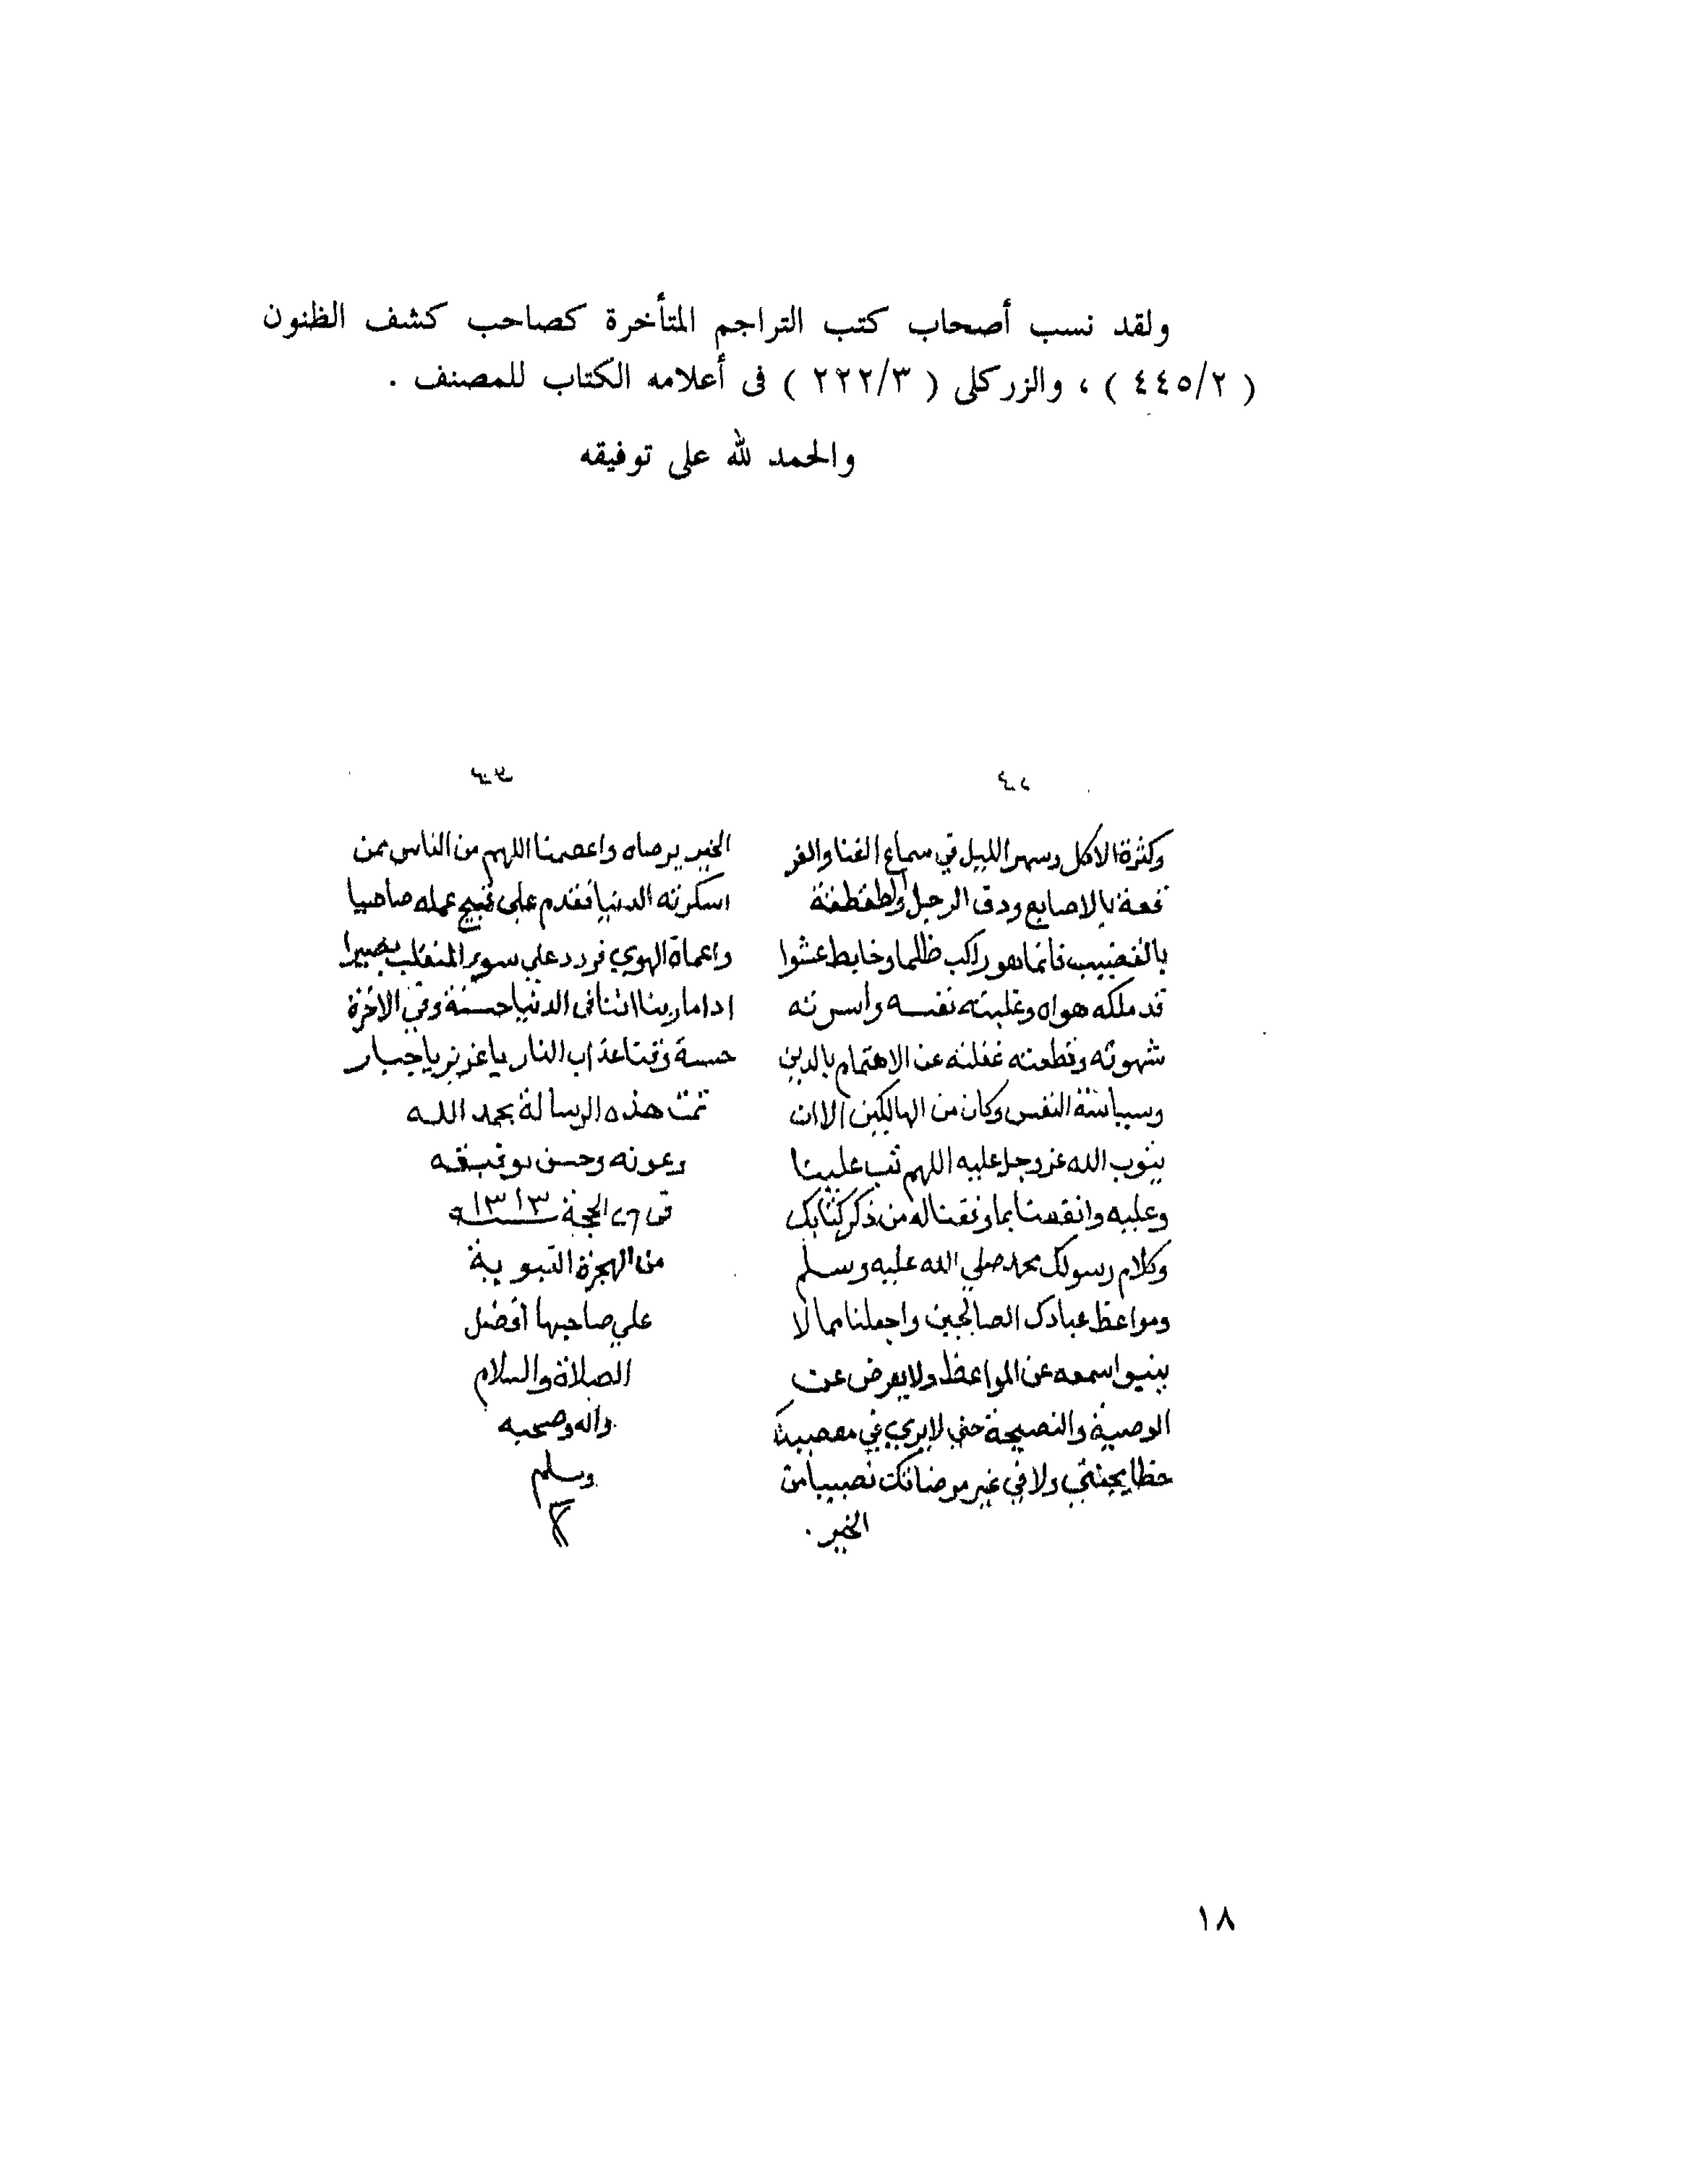 ولقد نسب أصحاب كتب التراجم المتأخرة كصاحب كشف الظنون
( ٤٤٥/٢ ) ، والزركلى ( ٢٢٢/٣ ) فى أعلامه الكتاب للمصنف .
والحمد لله على توفيقه
وكثرة الاكل وسهر الليل في سماع الغنا والفر
قعة بالاصابع ودق الرجل والطقطقة
بالقضيب فانما هو راكب ظلما وخابط عشوا
قد ملكه هواه وغلبته نفسه واسرته
شهوته وقطعته غفلته عن الاهتمام بالدين
وسياسة النفس وكان من الهالكين الا ان
يتوب الله عز وجل عليه اللهم تب علينا
وعليه وانفعنا بما وفقتنا له من ذكر كتابك
وكلام رسولك محمد صلي الله عليه وسلم
ومواعظ عبادك الصالحين واجعلنا مما لا
ينبو اسمعه عن المواعظ ولا يعرض عن
الوصية والنصيحة حتي لا يري في معصيتك
حظا يجتني ولا في غير مرضاتك نصيبا من
الخير .
الخير يرضاه واعصمنا اللهم من الناس ممن
اسكرته الدنيا فقدم على قبيح عمله صاحيا
واعماه الهوي فردد علي سوء المنقلب بصيرا
اتنا في الدنيا حسنة وفي الاخرة
حسنة وقنا عذاب النار يا عزيز يا جبار
تمت هذه الرسالة بحمد الله
وعونه وحسن توفيقه
الحجة سنة ١٣١٣
من الهجرة النبوية
علي صاحبها افضل
الصلاة والسلام
واله وصحبه
وسلم
١٨